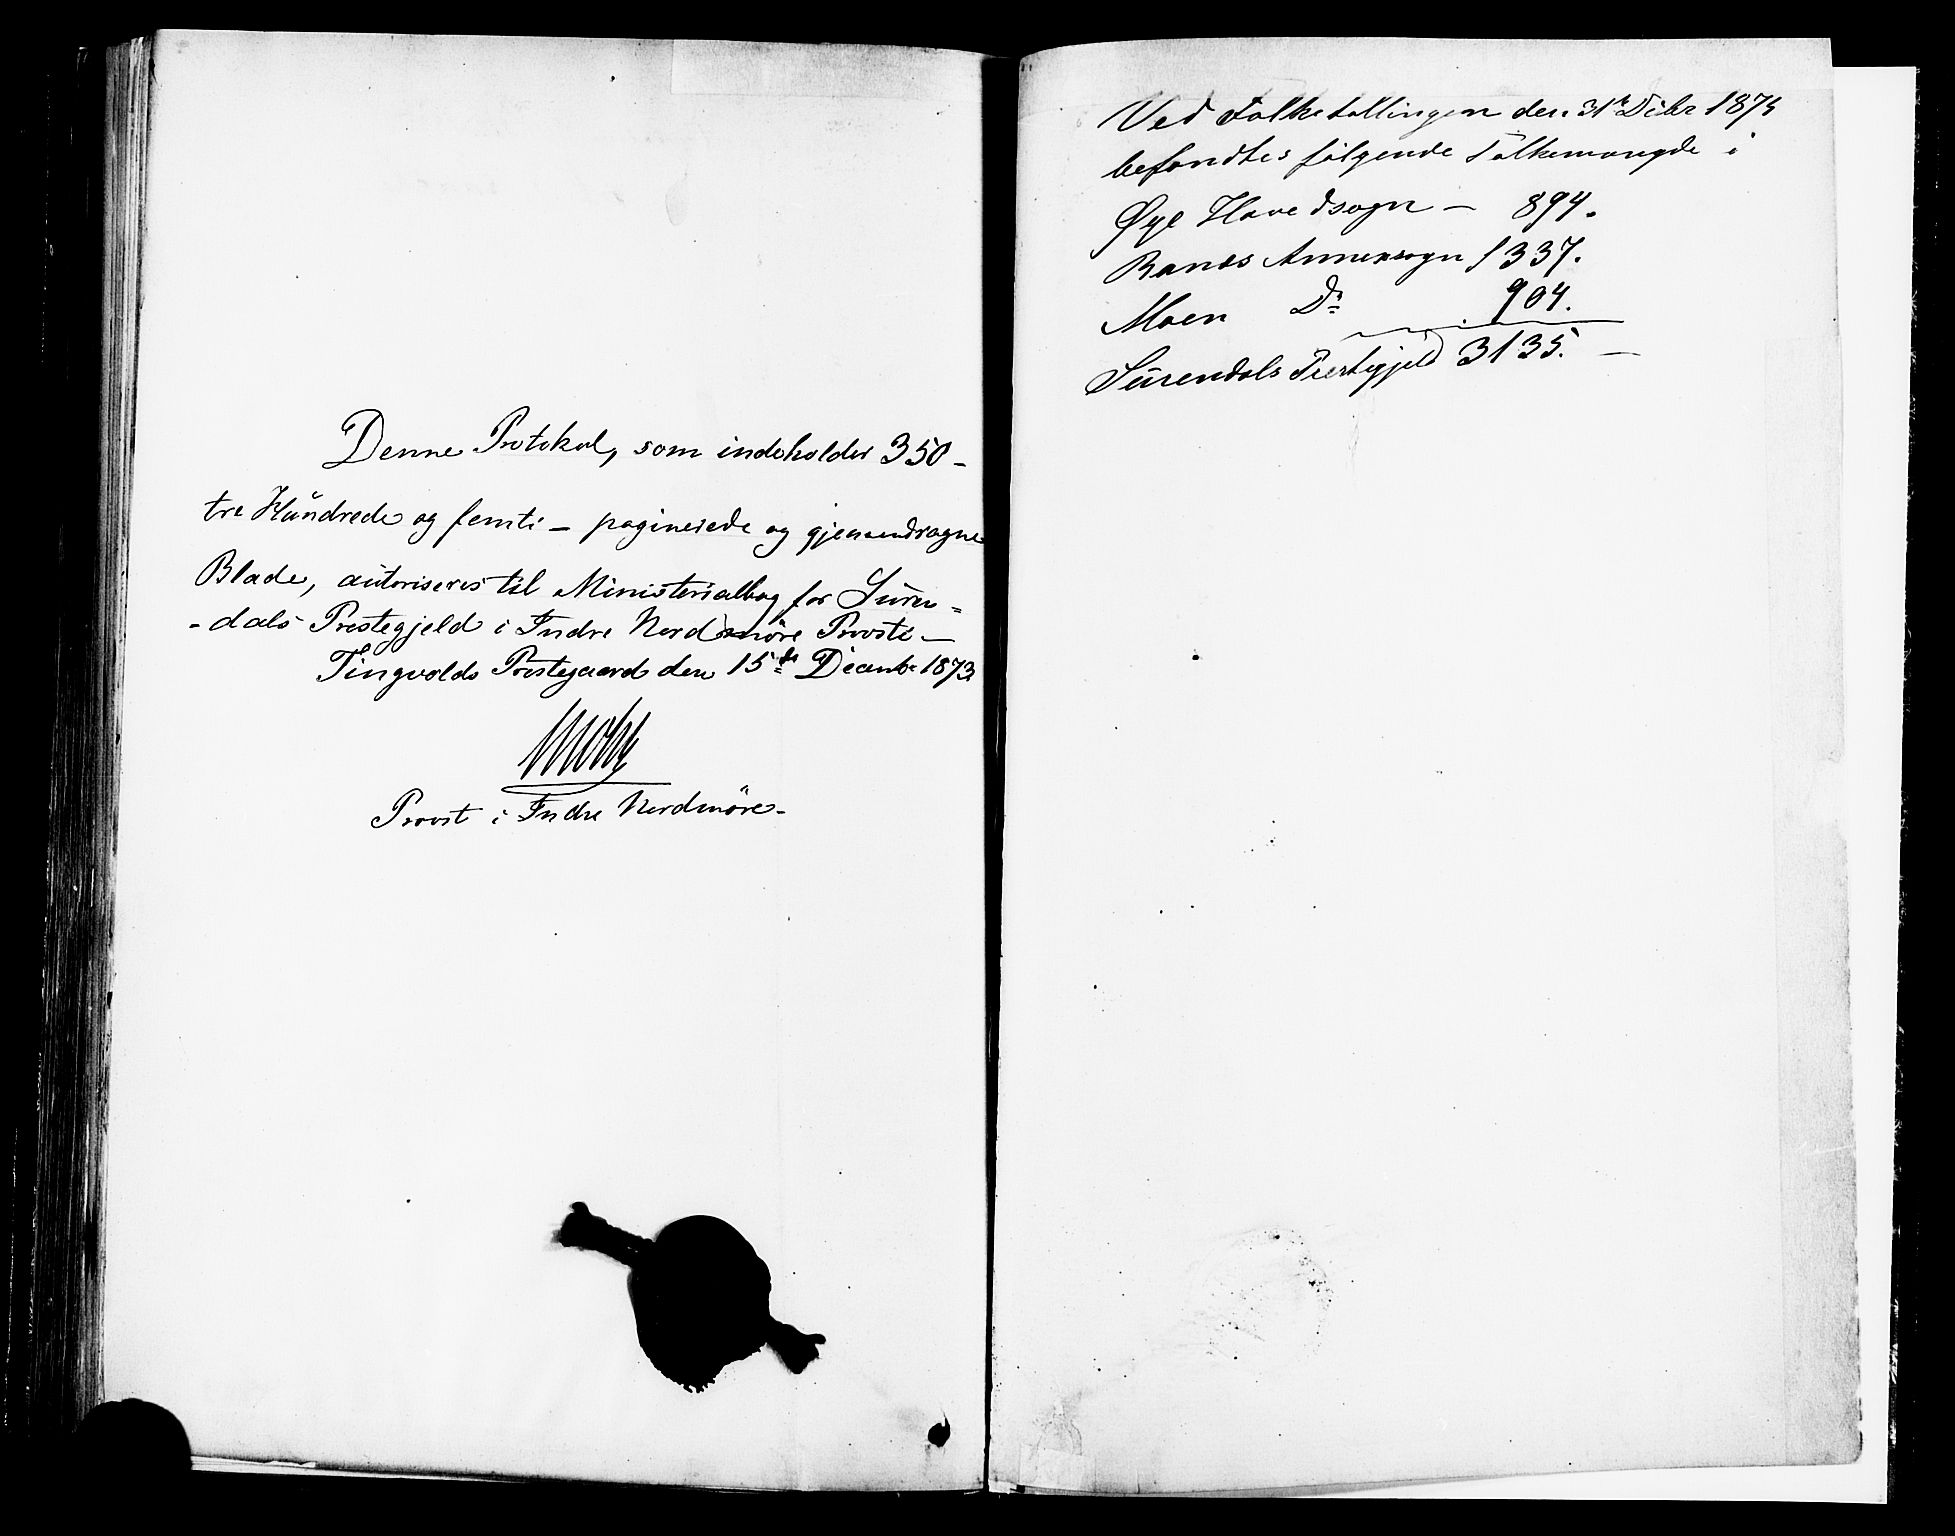 Denne Protokol, som indeholder 350 –
tre Hŭndrede og femti – paginerede og gjennemdragne
Blade, aŭtoriseres til Ministerialbog for Sŭren=
-dals Præstegjeld i Indre Nordmöre Provsti –
Tingvolds Præstegaard den 15de Decembr 1873
Provst i Indre Nordmöre –
Ved Folketællingen den 31te Decbr 1875
befandtes følgende Folkemængde i
Øye Hovedsogn – 894.
Ranæs Annexsogn 1337.
Moen Do 904.
Sŭrendals Præstegjeld 3135. –